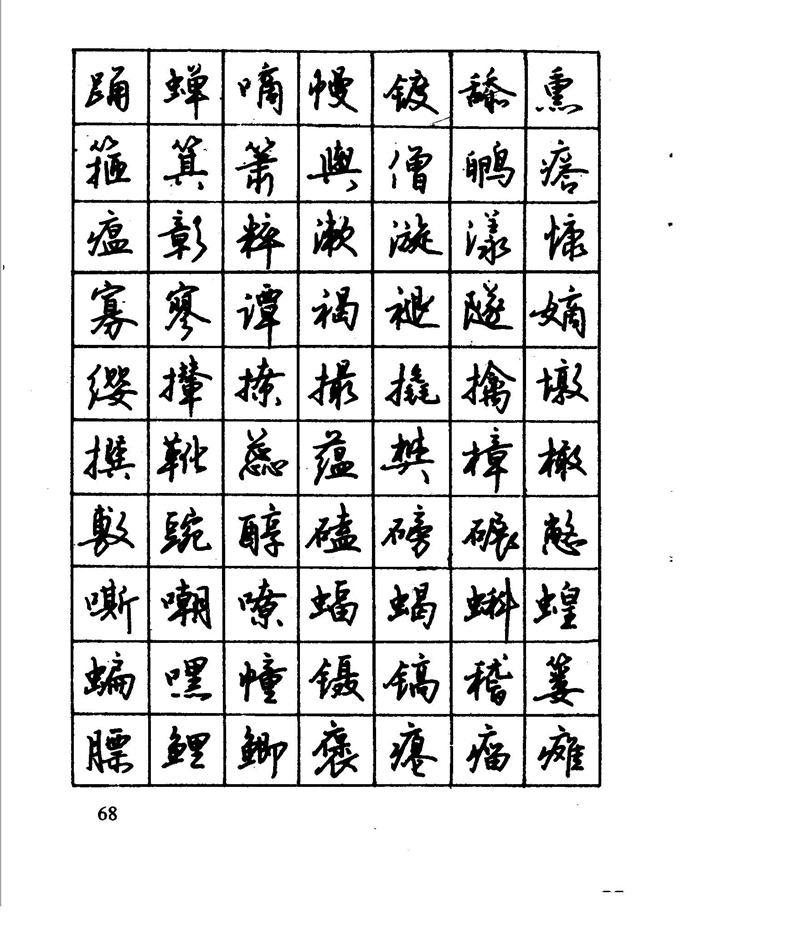 踊蝉嘀幔镀舔熏
箍箕箫舆僧鹏瘩
瘟彰粹漱漩漾慷
寡寥谭褐褪隧嫡
缨撵撩撮撬擒墩
撰靴蕊蕴樊樟橄
敷豌醇磕磅碾憋
嘶嘲嘹蝠蝎蝌蝗
蝙嘿幢镊镐稽篓
膘鲤鲫褒瘪瘤瘫
68